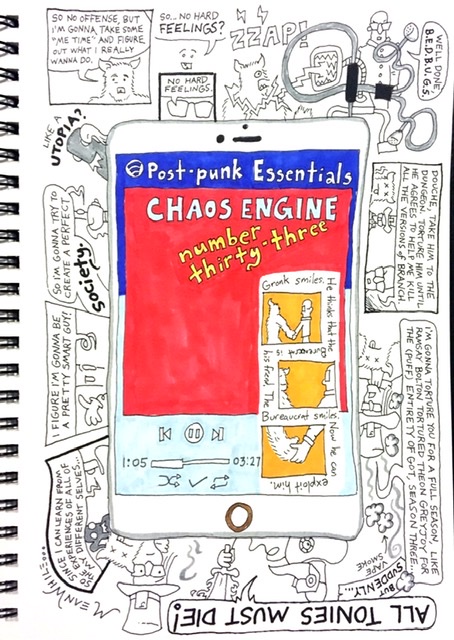 SO NO OFFENSE, BUT
I'M GONNA TAKE SOME
"ME TIME" AND FIGURE
OUT WHAT I REALLY
WANNA DO.
SO... NO HARD
FEELINGS?
NO HARD
FEELINGS.
ZZAP!
WELL DONE,
B.E.D.B.U.G.S.
DOUCHE, TAKE HIM TO THE
DUNGEON. TORTURE HIM UNTIL
HE AGREES TO HELP ME KILL
ALL THE VERSIONS OF BRANCH.
I'M GONNA TORTURE YOU FOR A FULL SEASON, LIKE
RAMSAY BOLTON TORTURED THEON GREYJOY FOR
THE (PUFF) ENTIRETY OF GOT, SEASON THREE...
VAPE
SMOKE
BUT
SUDDENLY...
ALL TONIES MUST DIE!
MEANWHILE...
SINCE I CAN LEARN FROM
THE EXPERIENCES OF ALL OF
MY DIFFERENT SELVES...
SO
I FIGURE I'M GONNA BE
A PRETTY SMART GUY!
SO I'M GONNA TRY TO
CREATE A PERFECT
society.
LIKE A
UTOPIA?
Post-punk Essentials
CHAOS ENGINE
number
thirty-three
Gronk smiles.
He thinks that the
Bureaucrat is
his friend. The
Bureaucrat smiles.
Now he can
exploit him.
1:05
03:27